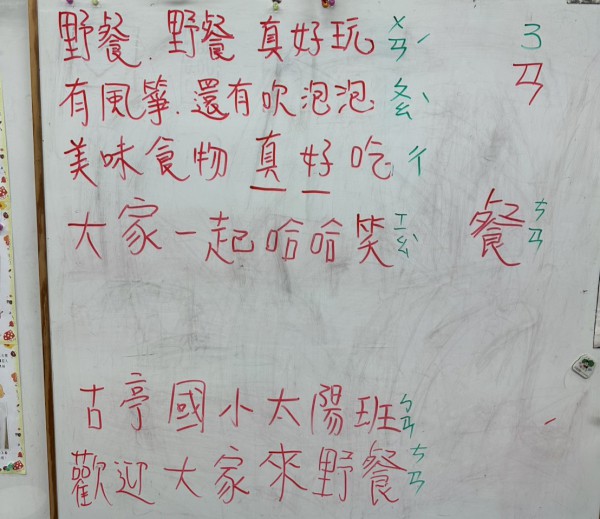 野餐.野餐 真好玩 ㄨㄢˊ
有風箏.還有吹泡泡 ㄆㄠˋ
美味食物 真好吃 ㄔ
大家一起哈哈笑 ㄒㄧㄠˋ
古亭國小太陽班 ㄅㄢ
歡迎大家來野餐 ㄘㄢ
ㄋ
ㄢ
餐 ㄘㄢ